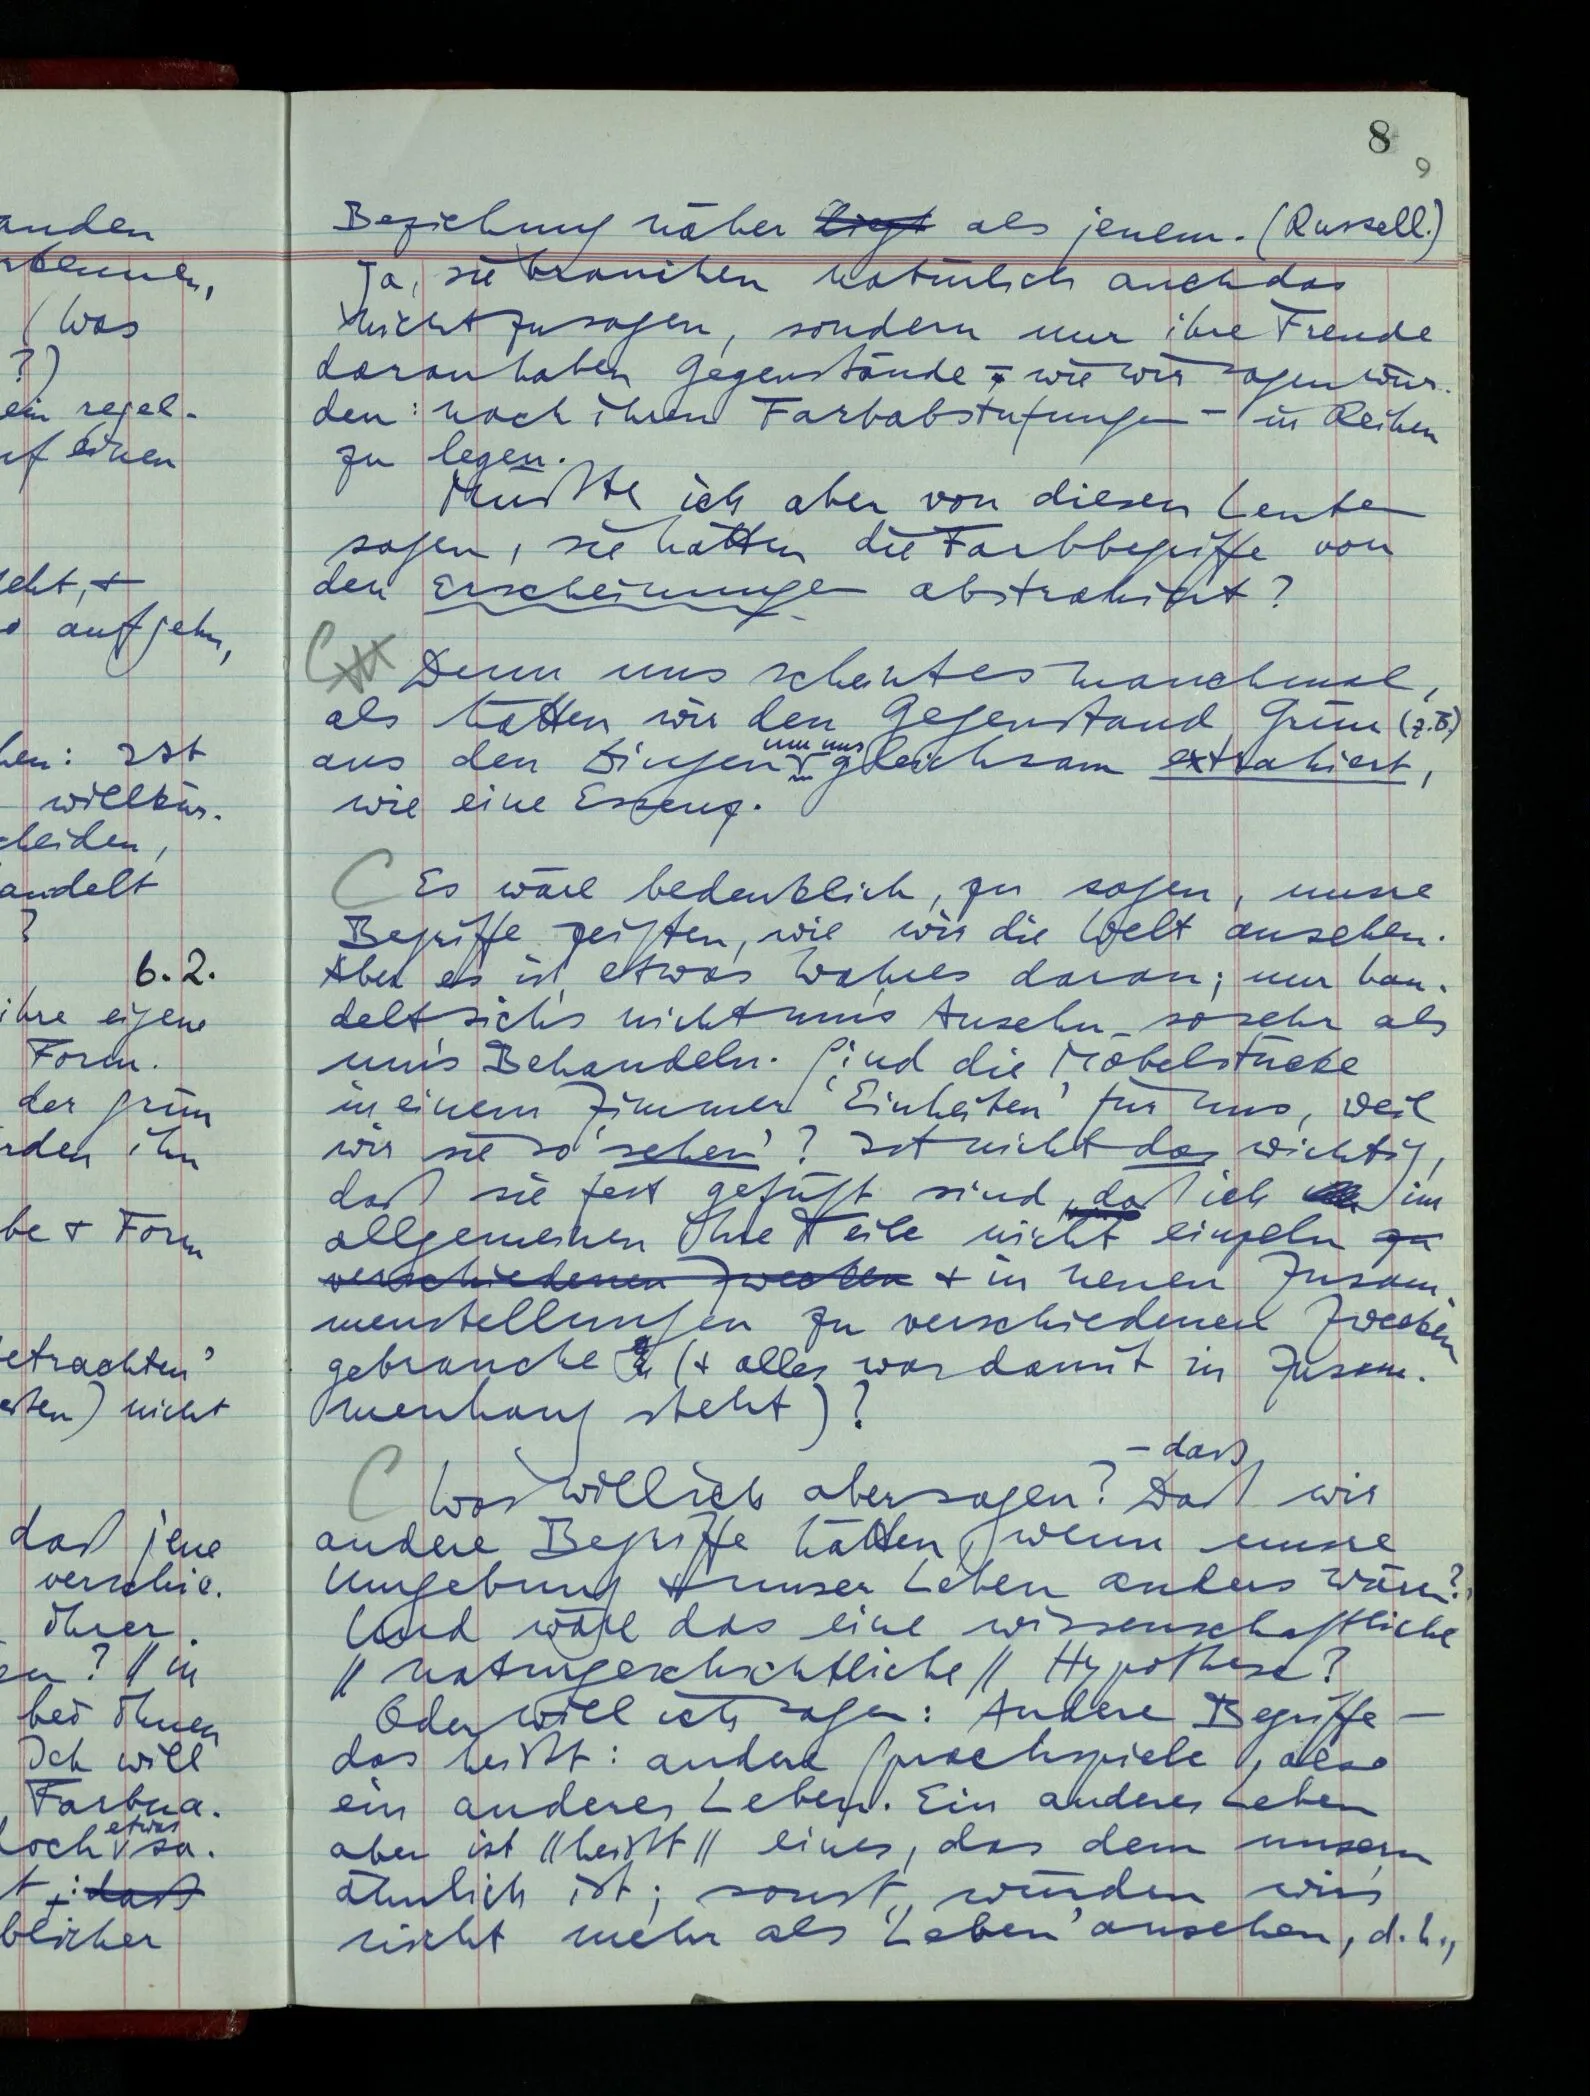 8
9
anden
rkennen,
(Was
?)
ein regel-
uf einen
eht, +
o aufgehn,
hen: Ist
willkür-
cheiden,
andelt
?
6.2.
ihre eigene
Form.
der grün
rden ihn
be + Form
betrachten'
esten) nicht
daß jene
verschie-
ihrer
en? // in
bei ihnen
Ich will
Farbua-
etwas
doch sa-
t, : daß
blicher
Beziehung näher liegt als jenem. (Russell.)
Ja, sie brauchen natürlich auch das
nicht zu sagen, sondern nur ihre Freude
daran haben Gegenstände – wie wir sagen wür-
den: nach ihren Farbabstufungen – in Reihen
zu legen.
Müßte ich aber von diesen Leuten
sagen, sie hätten die Farbbegriffe von
den Erscheinungen abstrahiert?
C Denn uns scheint es manchmal,
als hätten wir den Gegenstand Grün (z.B.)
nun nur
aus den Dingen gleichsam extrahiert,
wie eine Essenz.
C Es wäre bedenklich, zu sagen, unsre
Begriffe zeigten, wie wir die Welt ansehen.
Aber es ist etwas Wahres daran; nur han-
delt sich's nicht um's Ansehn so sehr als
um's Behandeln. Sind die Möbelstücke
in einem Zimmer 'Einheiten' für uns, weil
wir sie so 'sehen'? Ist nicht das wichtig,
daß sie fest gefügt sind, daß ich im
allgemeinen ihre Teile nicht einzeln zu
verschiedenen Zwecken + in neuen Zusam-
menstellungen zu verschiedenen Zwecken
gebrauche (+ alles was damit in Zusam-
menhang steht)?
– daß
C Was will ich aber sagen? Daß wir
andere Begriffe hätten, wenn unsre
Umgebung + unser Leben anders wären?
Und wäre das eine wissenschaftliche
// naturgeschichtliche // Hypothese?
Oder will ich sagen: Andere Begriffe –
das heißt: andere Sprachspiele, also
ein anderes Leben. Ein anderes Leben
aber ist // heißt // eines, das dem unsern
ähnlich ist; sonst würden wir's
nicht mehr als 'Leben' ansehen, d.h.,